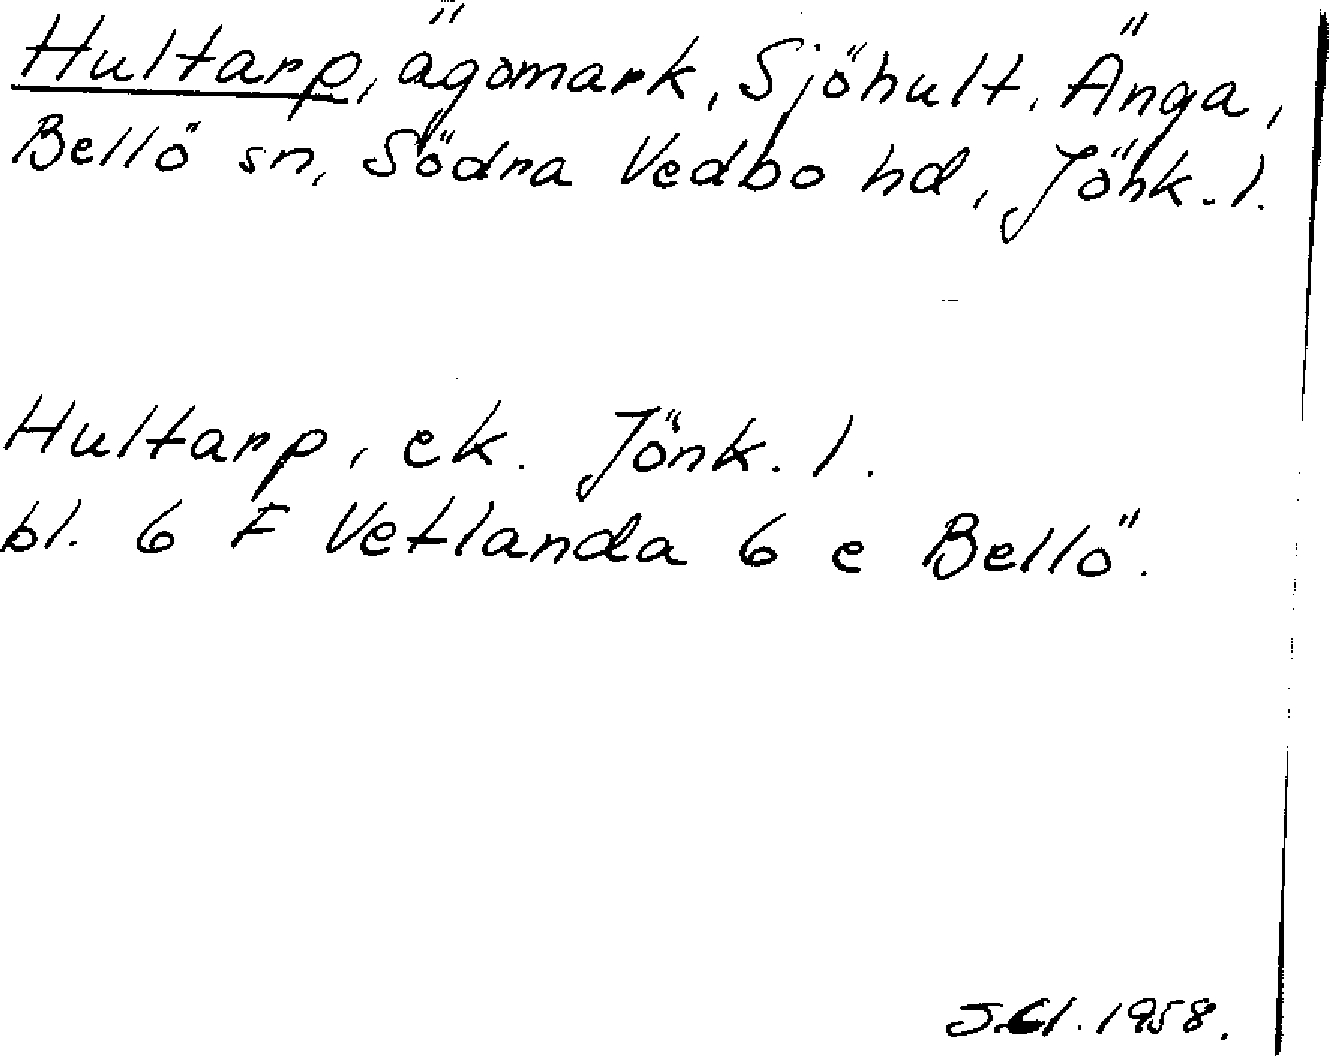 Hultarp, ägomark, Sjöhult, Änga,
Bellö sn, Södra Vedbo hd, Jönk. l.
Hultarp, ek. Jönk. l.
bl. 6 F Vetlanda 6 e Bellö.
J.Cl. 1958.